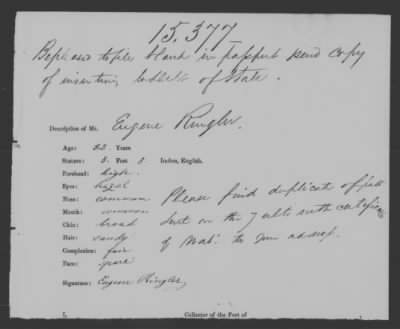 15.377
Be pleased to file blank in passport send copy
of insertion to Dept of State.
Description of Mr. Eugene Ringler.
Age: 32 Years
Stature: 5 Feet 8 Inches, English.
Forehead: high
Eyes: hazel
Nose: common Please find duplicate of pass
Mouth: common
Chin: broad sent on the 7 ult with certificate
Hair: sandy of to your address.
Complexion: fair
Face: spare
Signature: Eugene Ringler
I, Collector of the Port of